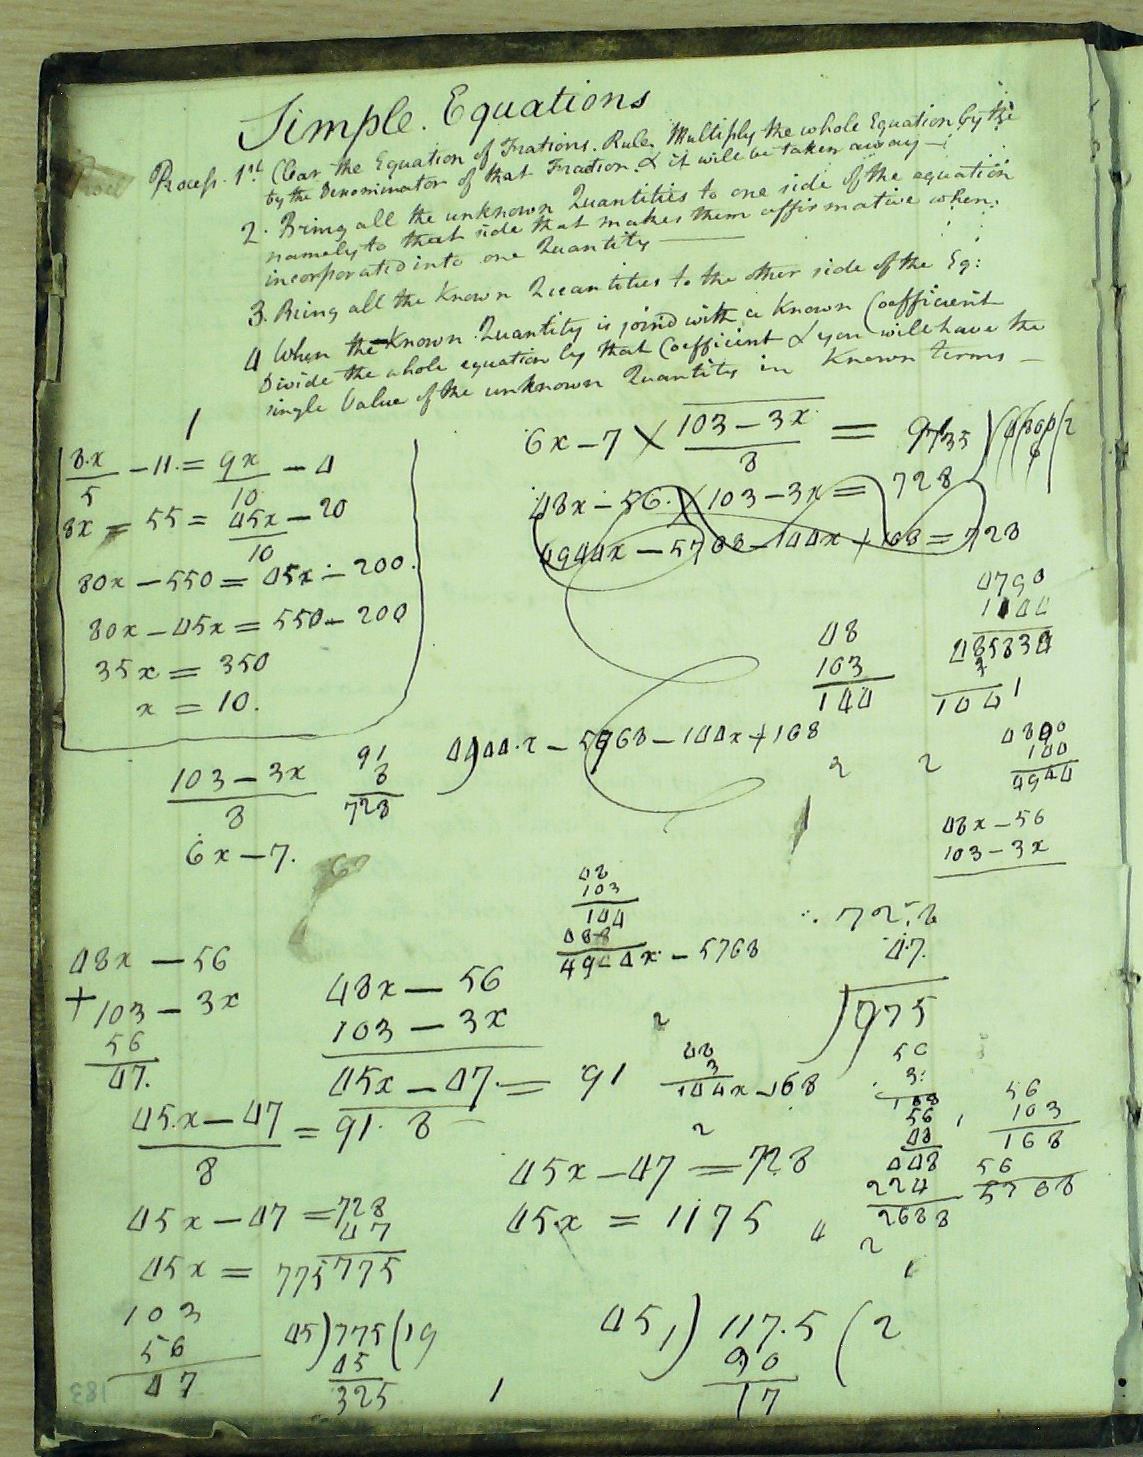 Simple. Equations
Process. 1st Clear the Equation of Frations. Rule. Multiply the whole Equation by the
by the Denominator of that Fraction & it will be taken away —
2. Bring all the unknown Quantities to one side of the equation
namely to that side that makes them affirmative when
incorporated into one Quantity —
3. Bring all the Known Quantities to the other side of the Eq:
4 When the Known Quantity is joind with a Known Coefficient
Divide the whole equation by that Coefficient & you will have the
single Value of the unknown Quantity in Known terms —
1
8x/5 - 11 = 9x/10 - 4
8x = 55 = 45x - 20
10
80x - 550 = 45x - 200.
80x - 45x = 550 - 200
35x = 350
x = 10.
6x - 7 × 103 - 3x = 
8
48x - 56 × 103 - 3x = 728
4944x - 5768 - 144x + 168 = 728
4790
48
103
144
103 - 3x
8
91
8
728
4944x - 5768 - 144x + 168
2
2
144
4944
6x - 7.
48x - 56
103 - 3x
48
103
144
4944x - 5768
728
47.
975
48x - 56
+ 103 - 3x
56
47.
48x - 56
103 - 3x
45x - 47 = 91
2
48
3
144x - 168
56
3
168
56
48
448
224
2688
56
103
168
56
5768
45x - 47 = 91. 8
8
2
45x - 47 = 728
45x - 47 = 728
47
775
45x = 1175
4
2
45x = 775
103
56
47
45)775(19
45
325
1
45,) 117.5 (2
90
17
183